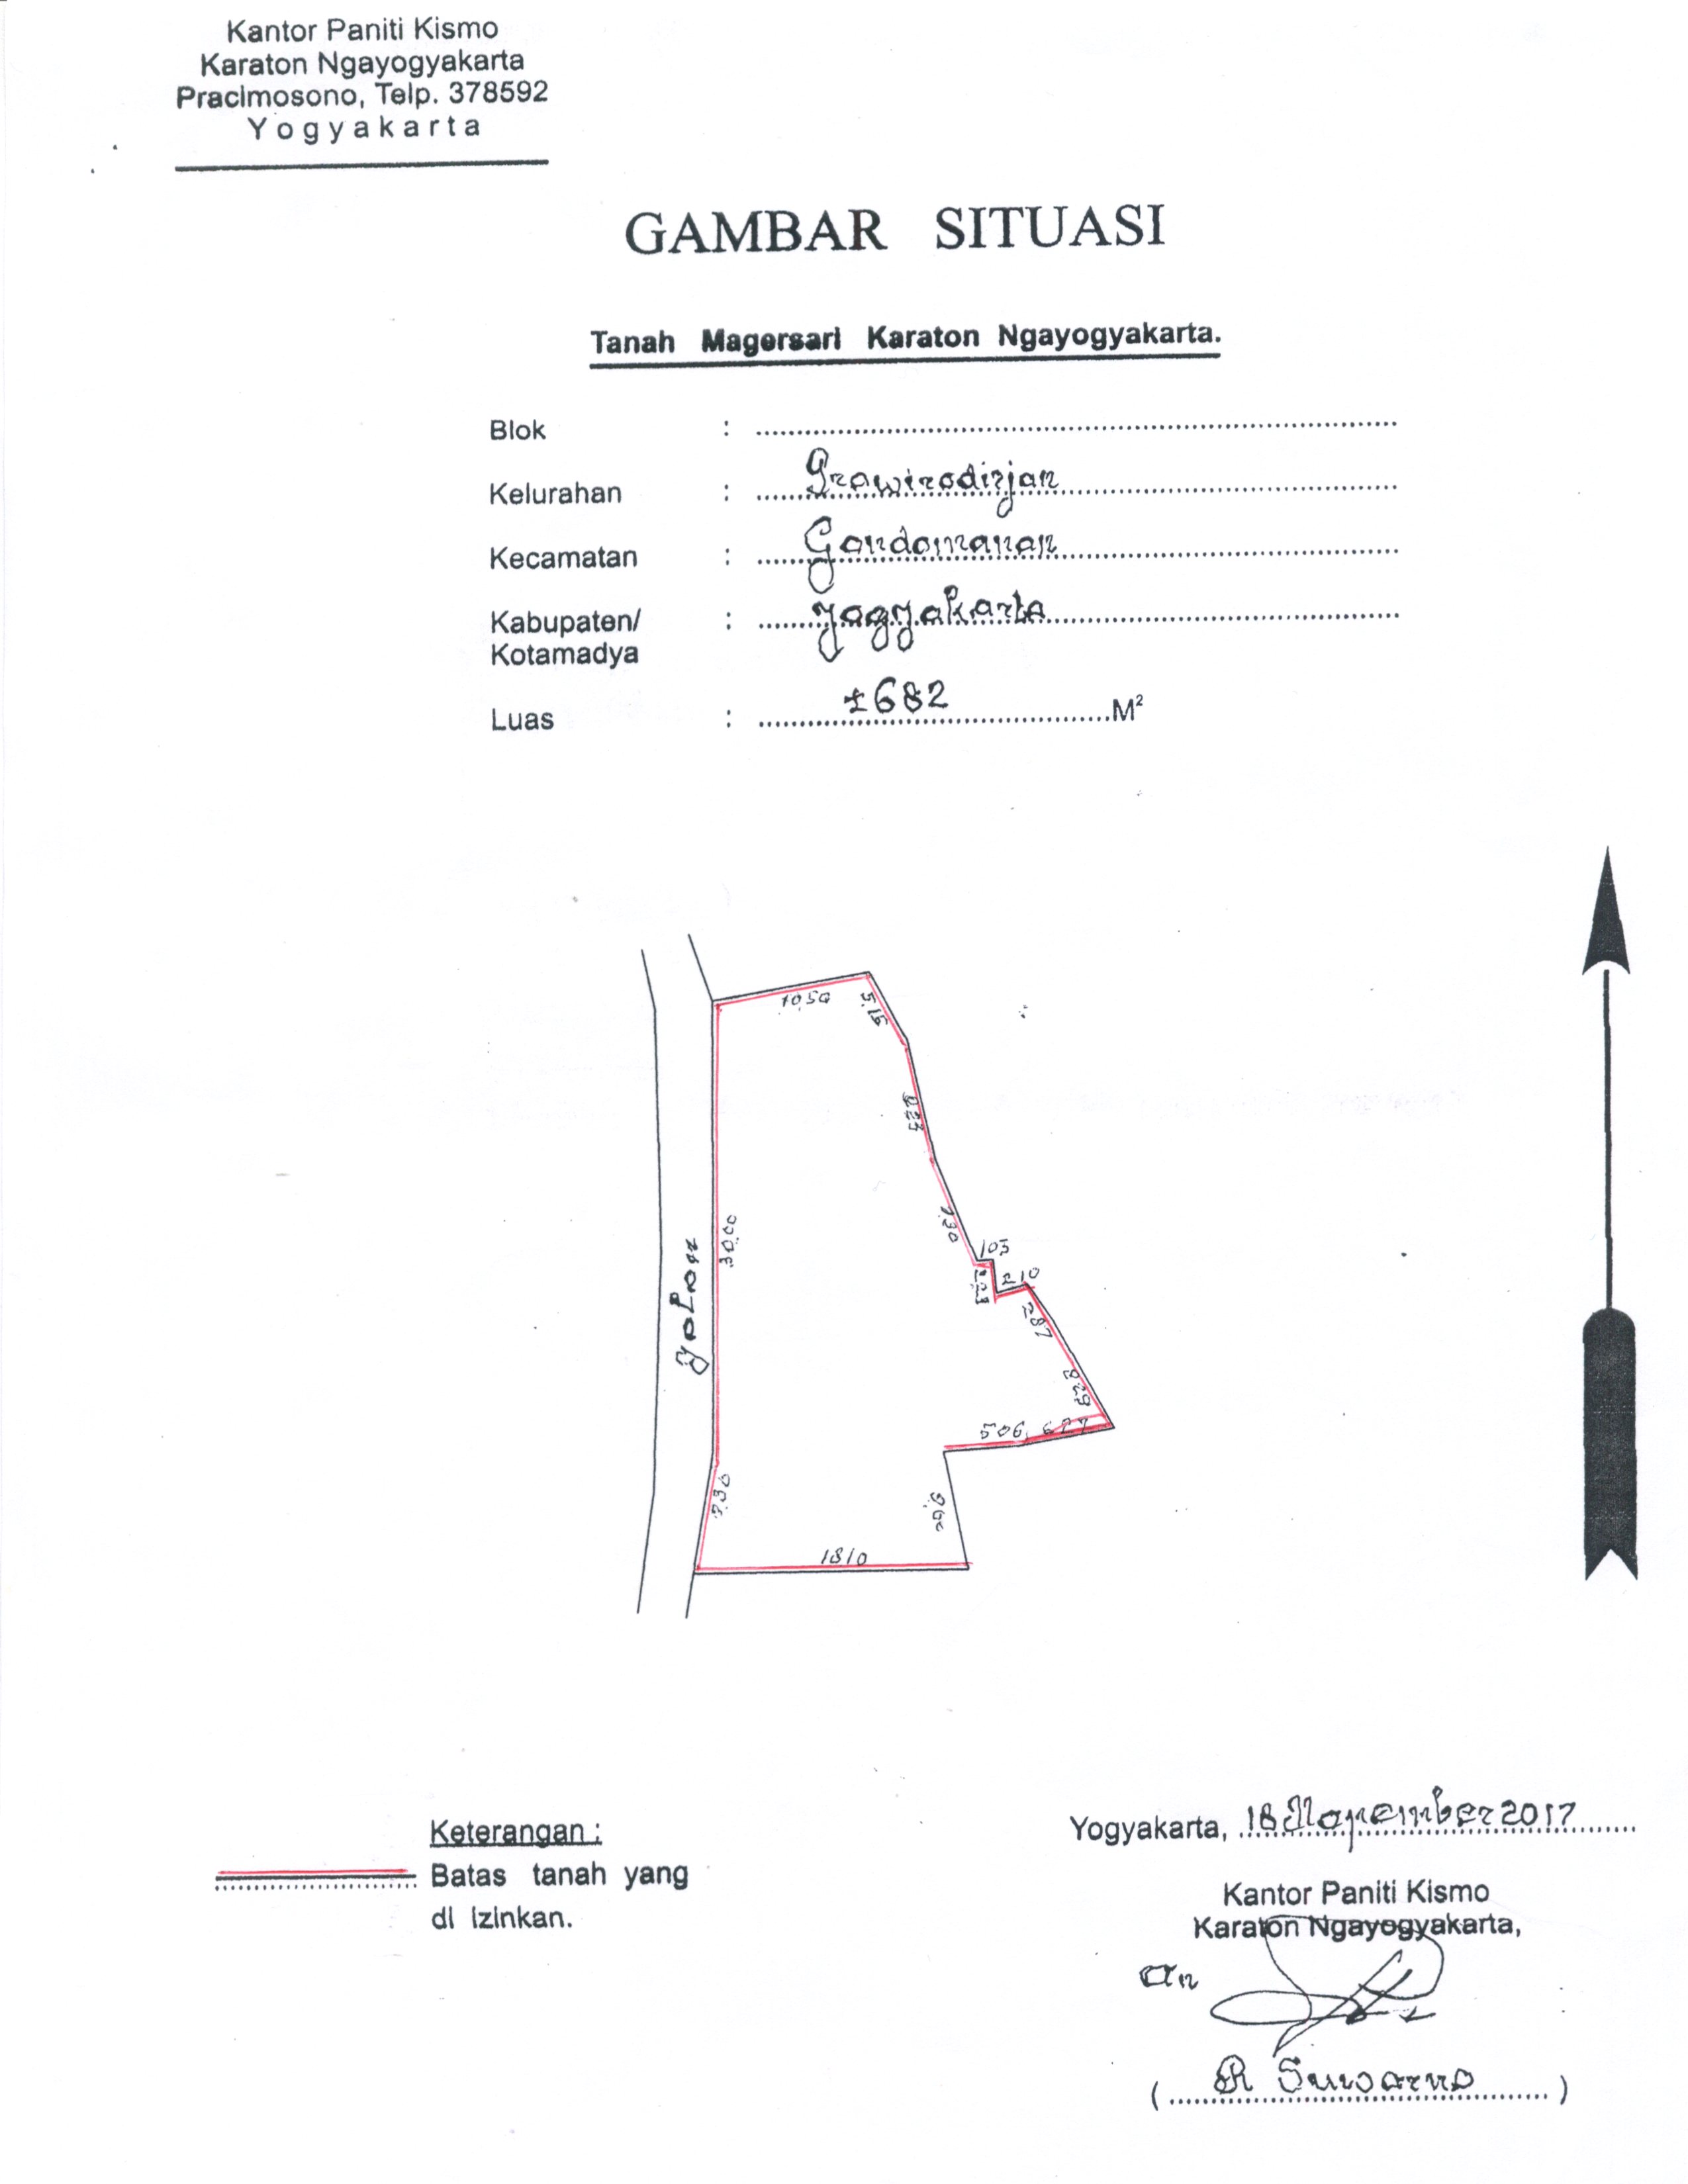 Kantor Paniti Kismo
Karaton Ngayogyakarta
Pracimosono, Telp. 378592
Yogyakarta
GAMBAR SITUASI
Tanah Magersari Karaton Ngayogyakarta.
Blok :
Kelurahan : Prawirodirjan
Kecamatan : Gondomanan
Kabupaten/ : Yogyakarta
Kotamadya
Luas : ±682 M²
10,50
5,15
7,30
1,03
2,10
2,87
30,00
Jalan
5,06
7,30
18,10
Keterangan :
Batas tanah yang
di izinkan.
Yogyakarta, 18 Nopember 2017
Kantor Paniti Kismo
Karaton Ngayogyakarta,
an
( R Suwarno )